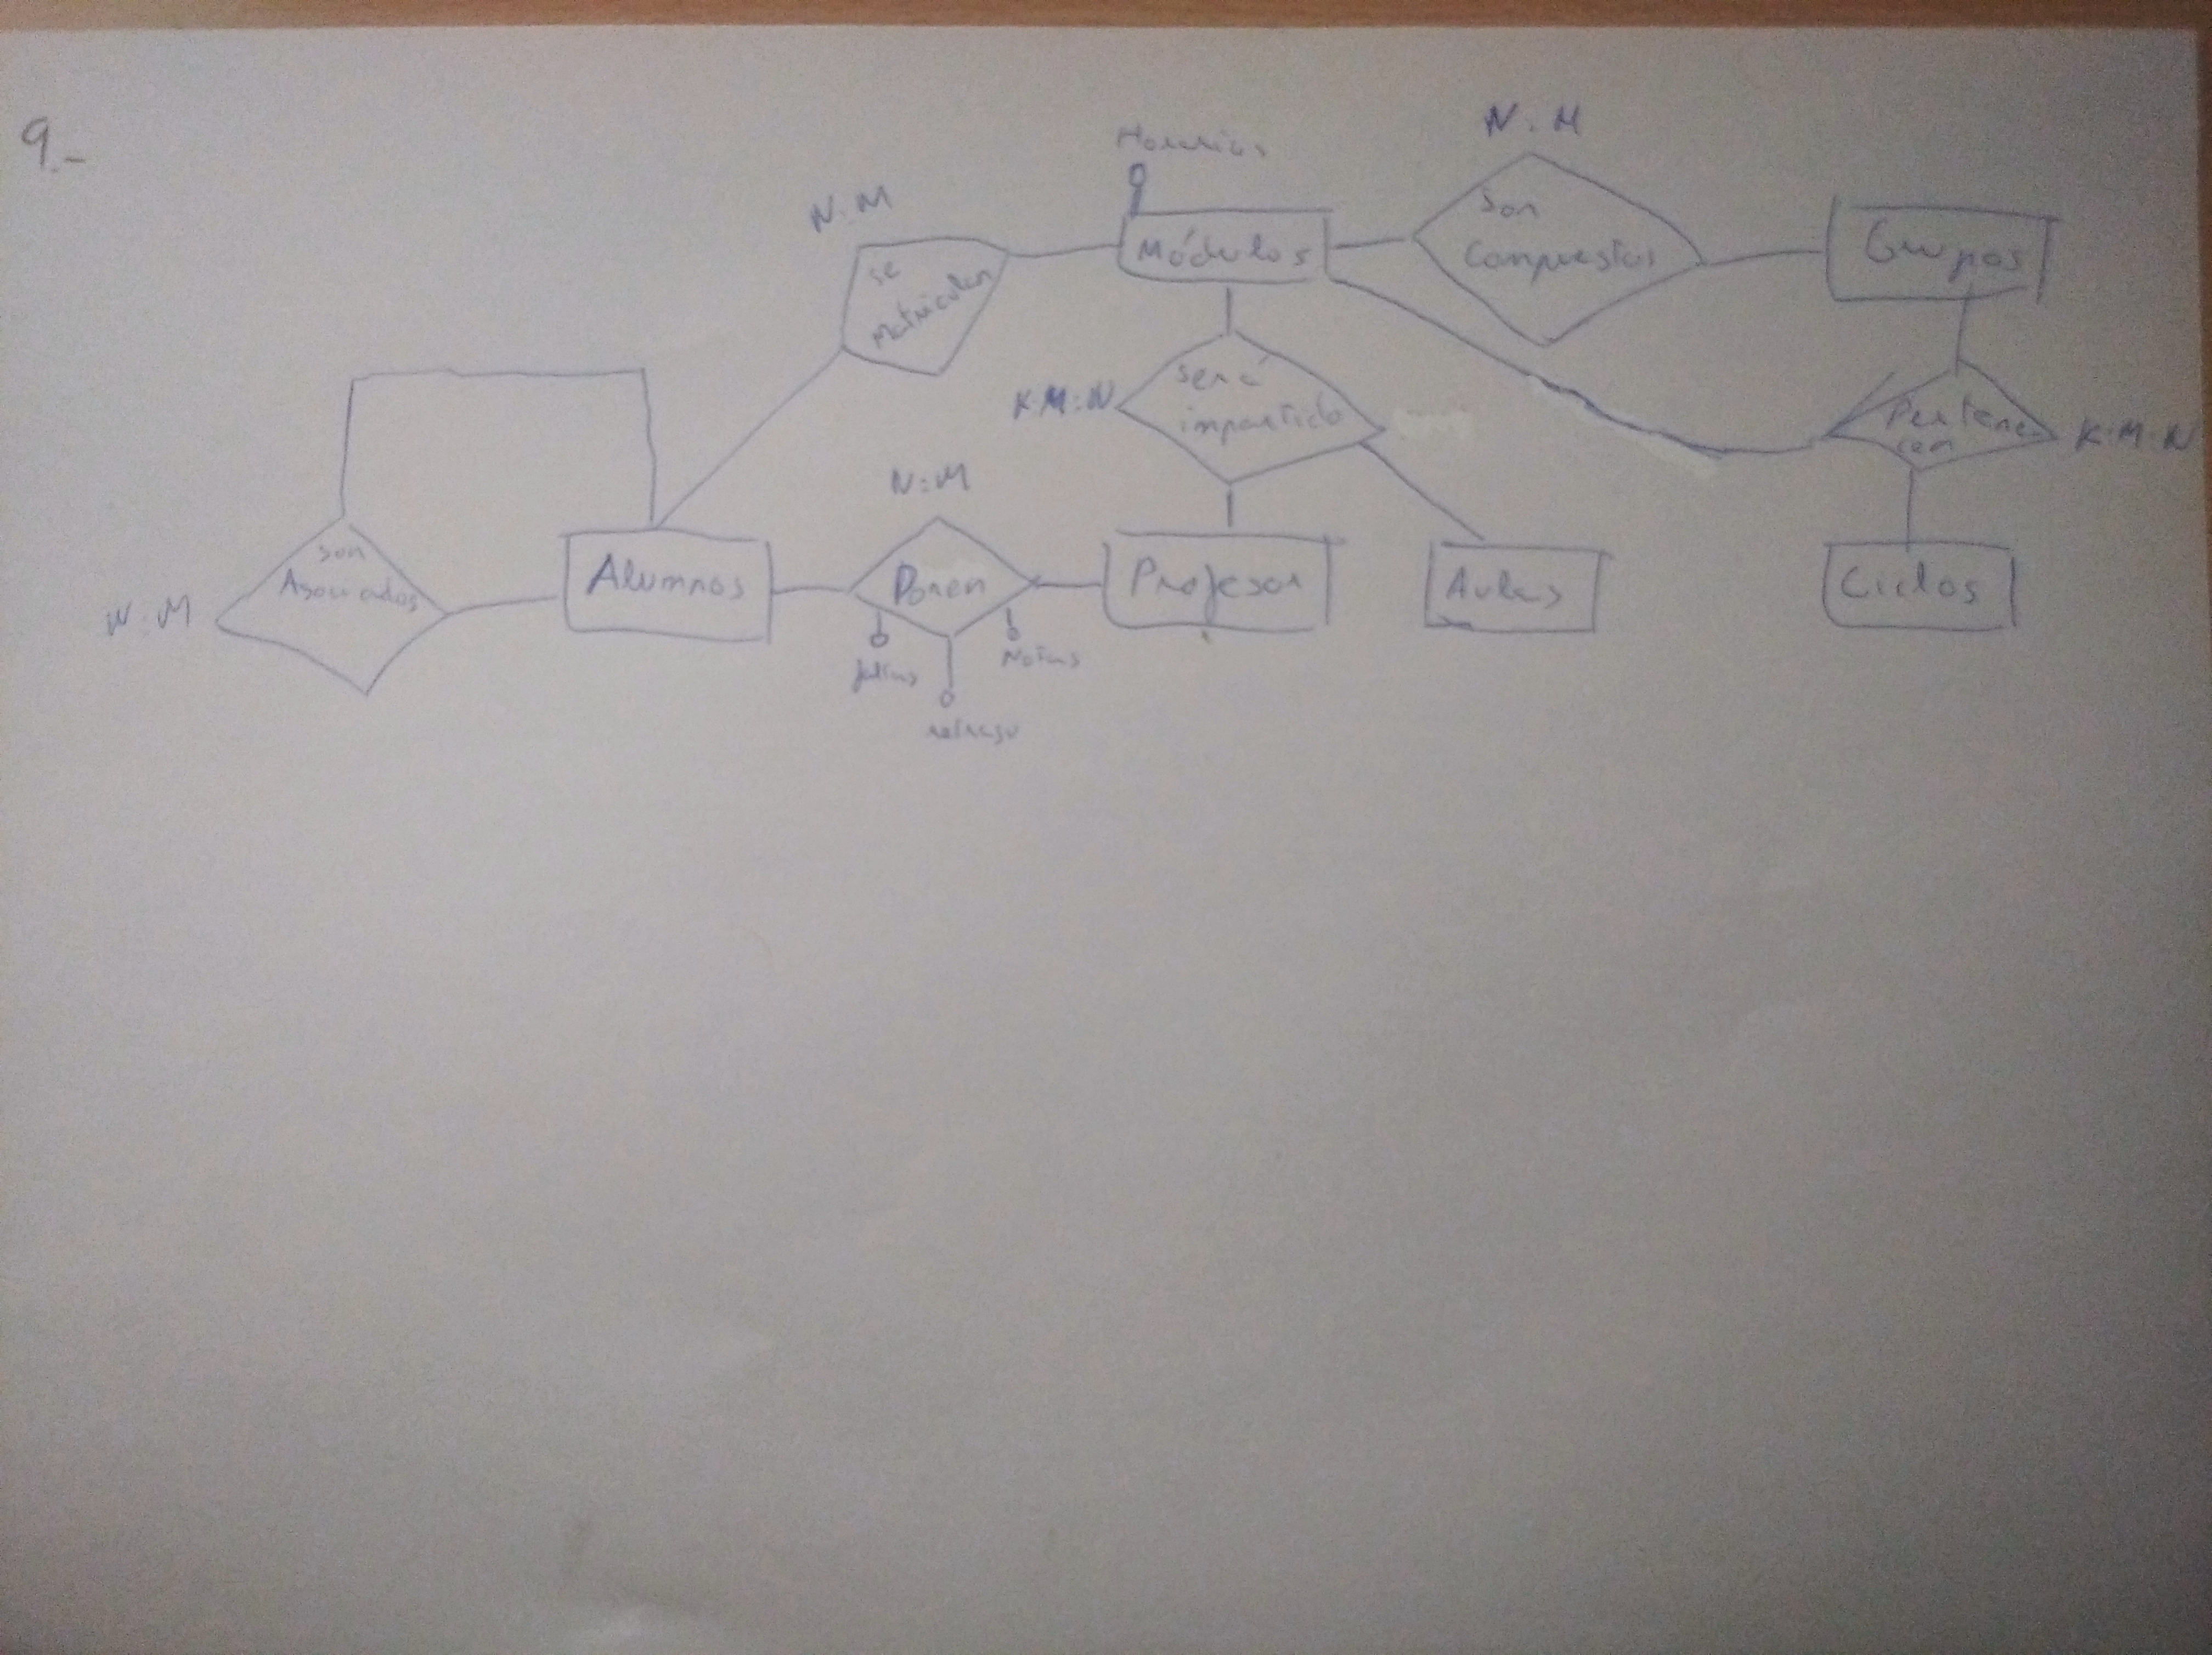 9.-
N:M
Horarios
N:M
se
Matriculan
Módulos
son
Compuestos
Grupos
K:M:N
será
impartido
Pertene
cen
K:M:N
N:M
son
Asociados
N:M
Alumnos
Ponen
Profesor
Aulas
Ciclos
faltas
Notas
retraso